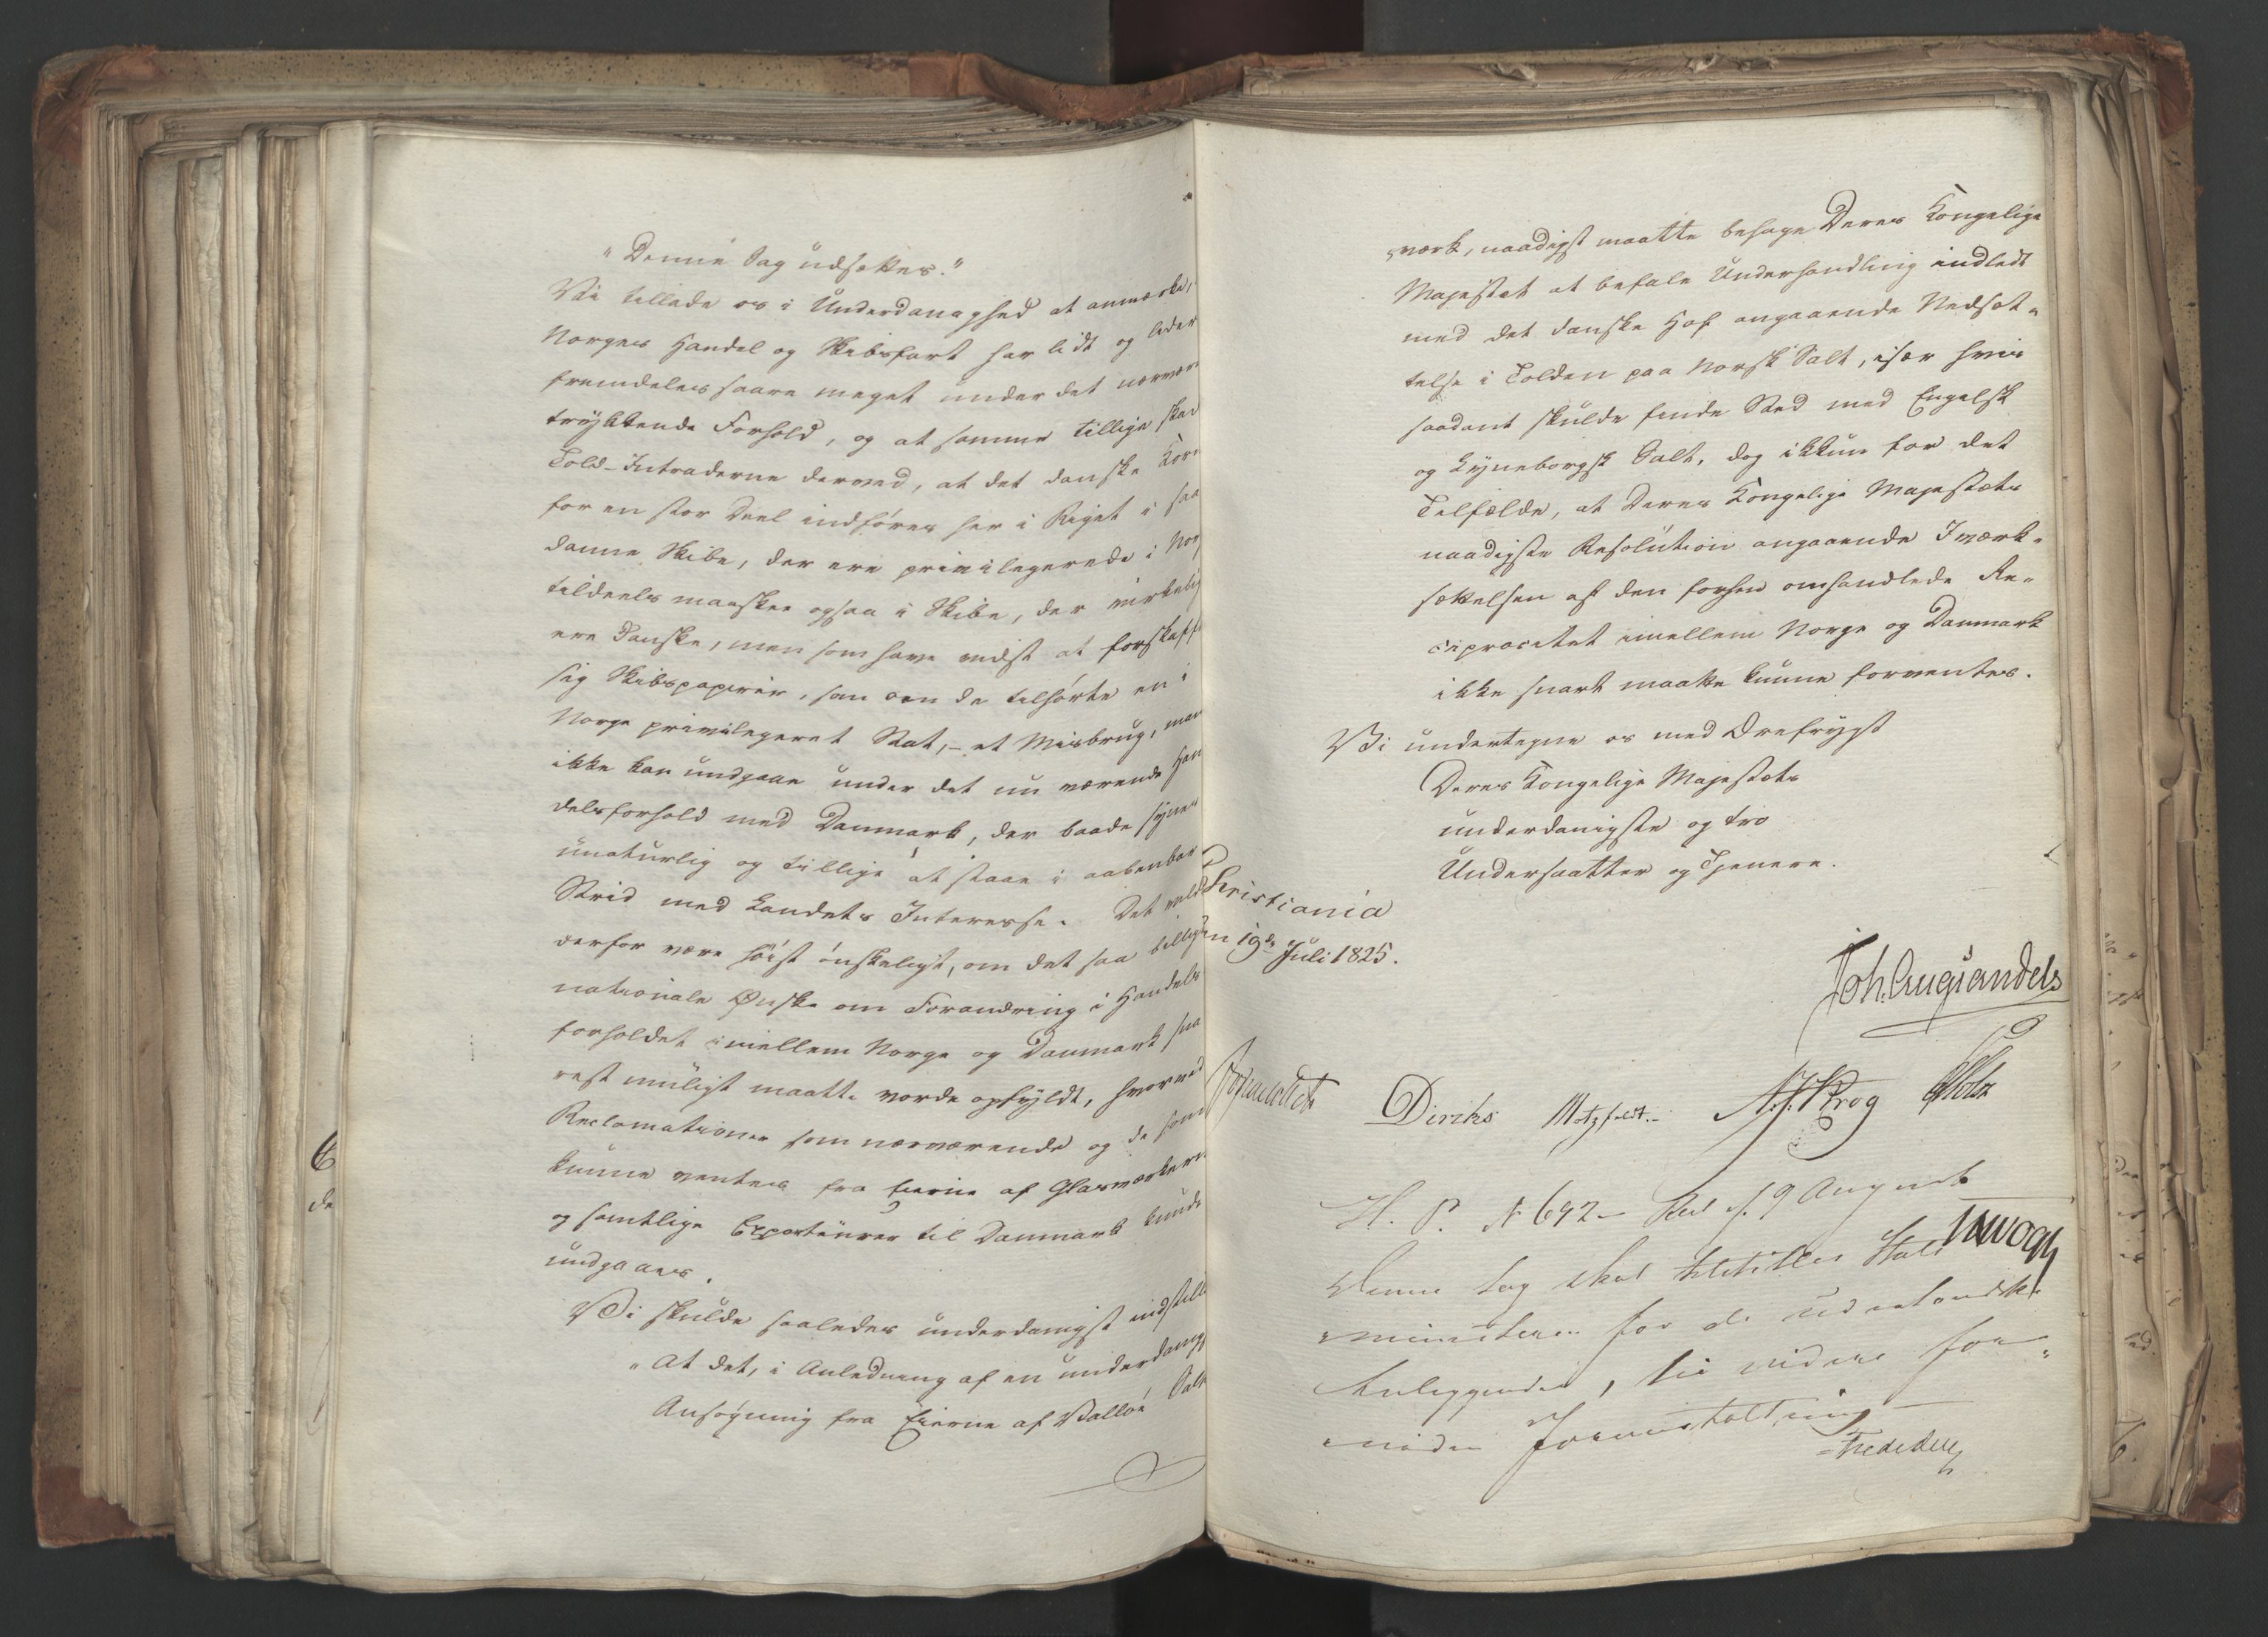 "Denne Sag udsættes."
Vi tillade os i Underdanighed at anmærke,
Norges Handel og Skibsfart har lidt og lider
fremdeles saare meget under det nærvær
trykkende Forhold, og at samme tillige skad
Told-Intraderne derved, at det danske Korn
for en stor Deel indföres her i Riget i saa
danne Skibe, der ere privilegerede i Nor
tildeels maaskee ogsaa i Skibe, der virkelig
ere danske, men som have vidst at forskaffe
sig Skibspapirer, som om de tilhörte en i
Norge privilegeret Stat, - et Misbrug, man
ikke kan undgaae under det nu værende Han
delsforhold med Danmark, der baade synes
unaturlig og tillige at staae i aabenbar
Strid med Landets Interesse. Det vilde
derfor være höist önskeligt, om det saa billige
nationale Ønske om Forandring i Handels
forholdet imellem Norge og Danmark sna
rest muligt maatte vorde opfyldt, hvorved
Reclamationer som nærværende og de som
kunne ventes fra Eierne af Glasværkerne
og samtlige Exporteurer til Danmark kunde
undgaaes.
Vi skulde saaledes underdanigst indstille
"At det, i Anledning af en underdanig
Ansøgning fra Eierne af Valløe Salt
værk, naadigst maatte behage Deres Kongelige
Majestæt at befale Underhandling indledt
med det danske Hof angaaende Nedsæt-
telse i Tolden paa Norsk Salt, især hvis
saadant skulde finde Sted med Engelsk
og Lyneborgsk Salt, dog ikkun for det
Tilfælde, at Deres Kongelige Majestæts
naadigste Resolution angaaende Iværk-
sættelsen af den forhen omhandlede Re-
ciprocitet imellem Norge og Danmark
ikke snart maatte kunne forventes.
Vi undertegne os med Ærefrygt
Deres Kongelige Majestæts
underdanigste og tro
Undersaatter og Tjenere.
Christiania
den 19de Juli 1825.
Joh. Aug. Sandels
Diriks Motzfeldt. Krog Holst
H. P. N 692 - Red. f. 9 August
Denne Sag skal tilstilles Stats
ministeren for de udenlandske
Anliggender, til videre for-
nöden Foranstaltning